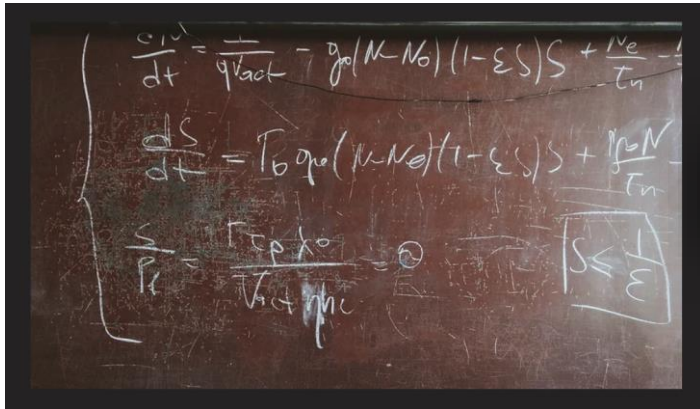 dN/dt = I/qVact - g₀(N-N₀)(1-εS)S + Ne/τn -
dS/dt = Γ₀g₀(N-N₀)(1-εS)S + N/τn -
S/Pf = Γτpλ₀/Vactηhc =
S ≤ 1/ε